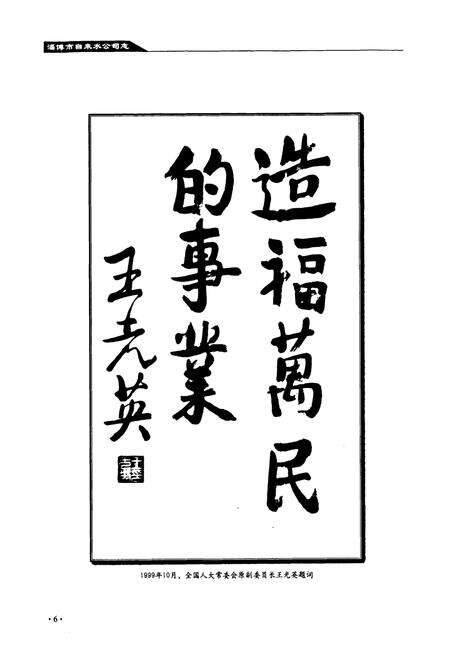 淄博市自来水公司志
造福萬民
的事業
王光英
1999年10月，全国人大常委会原副委员长王光英题词
·6·